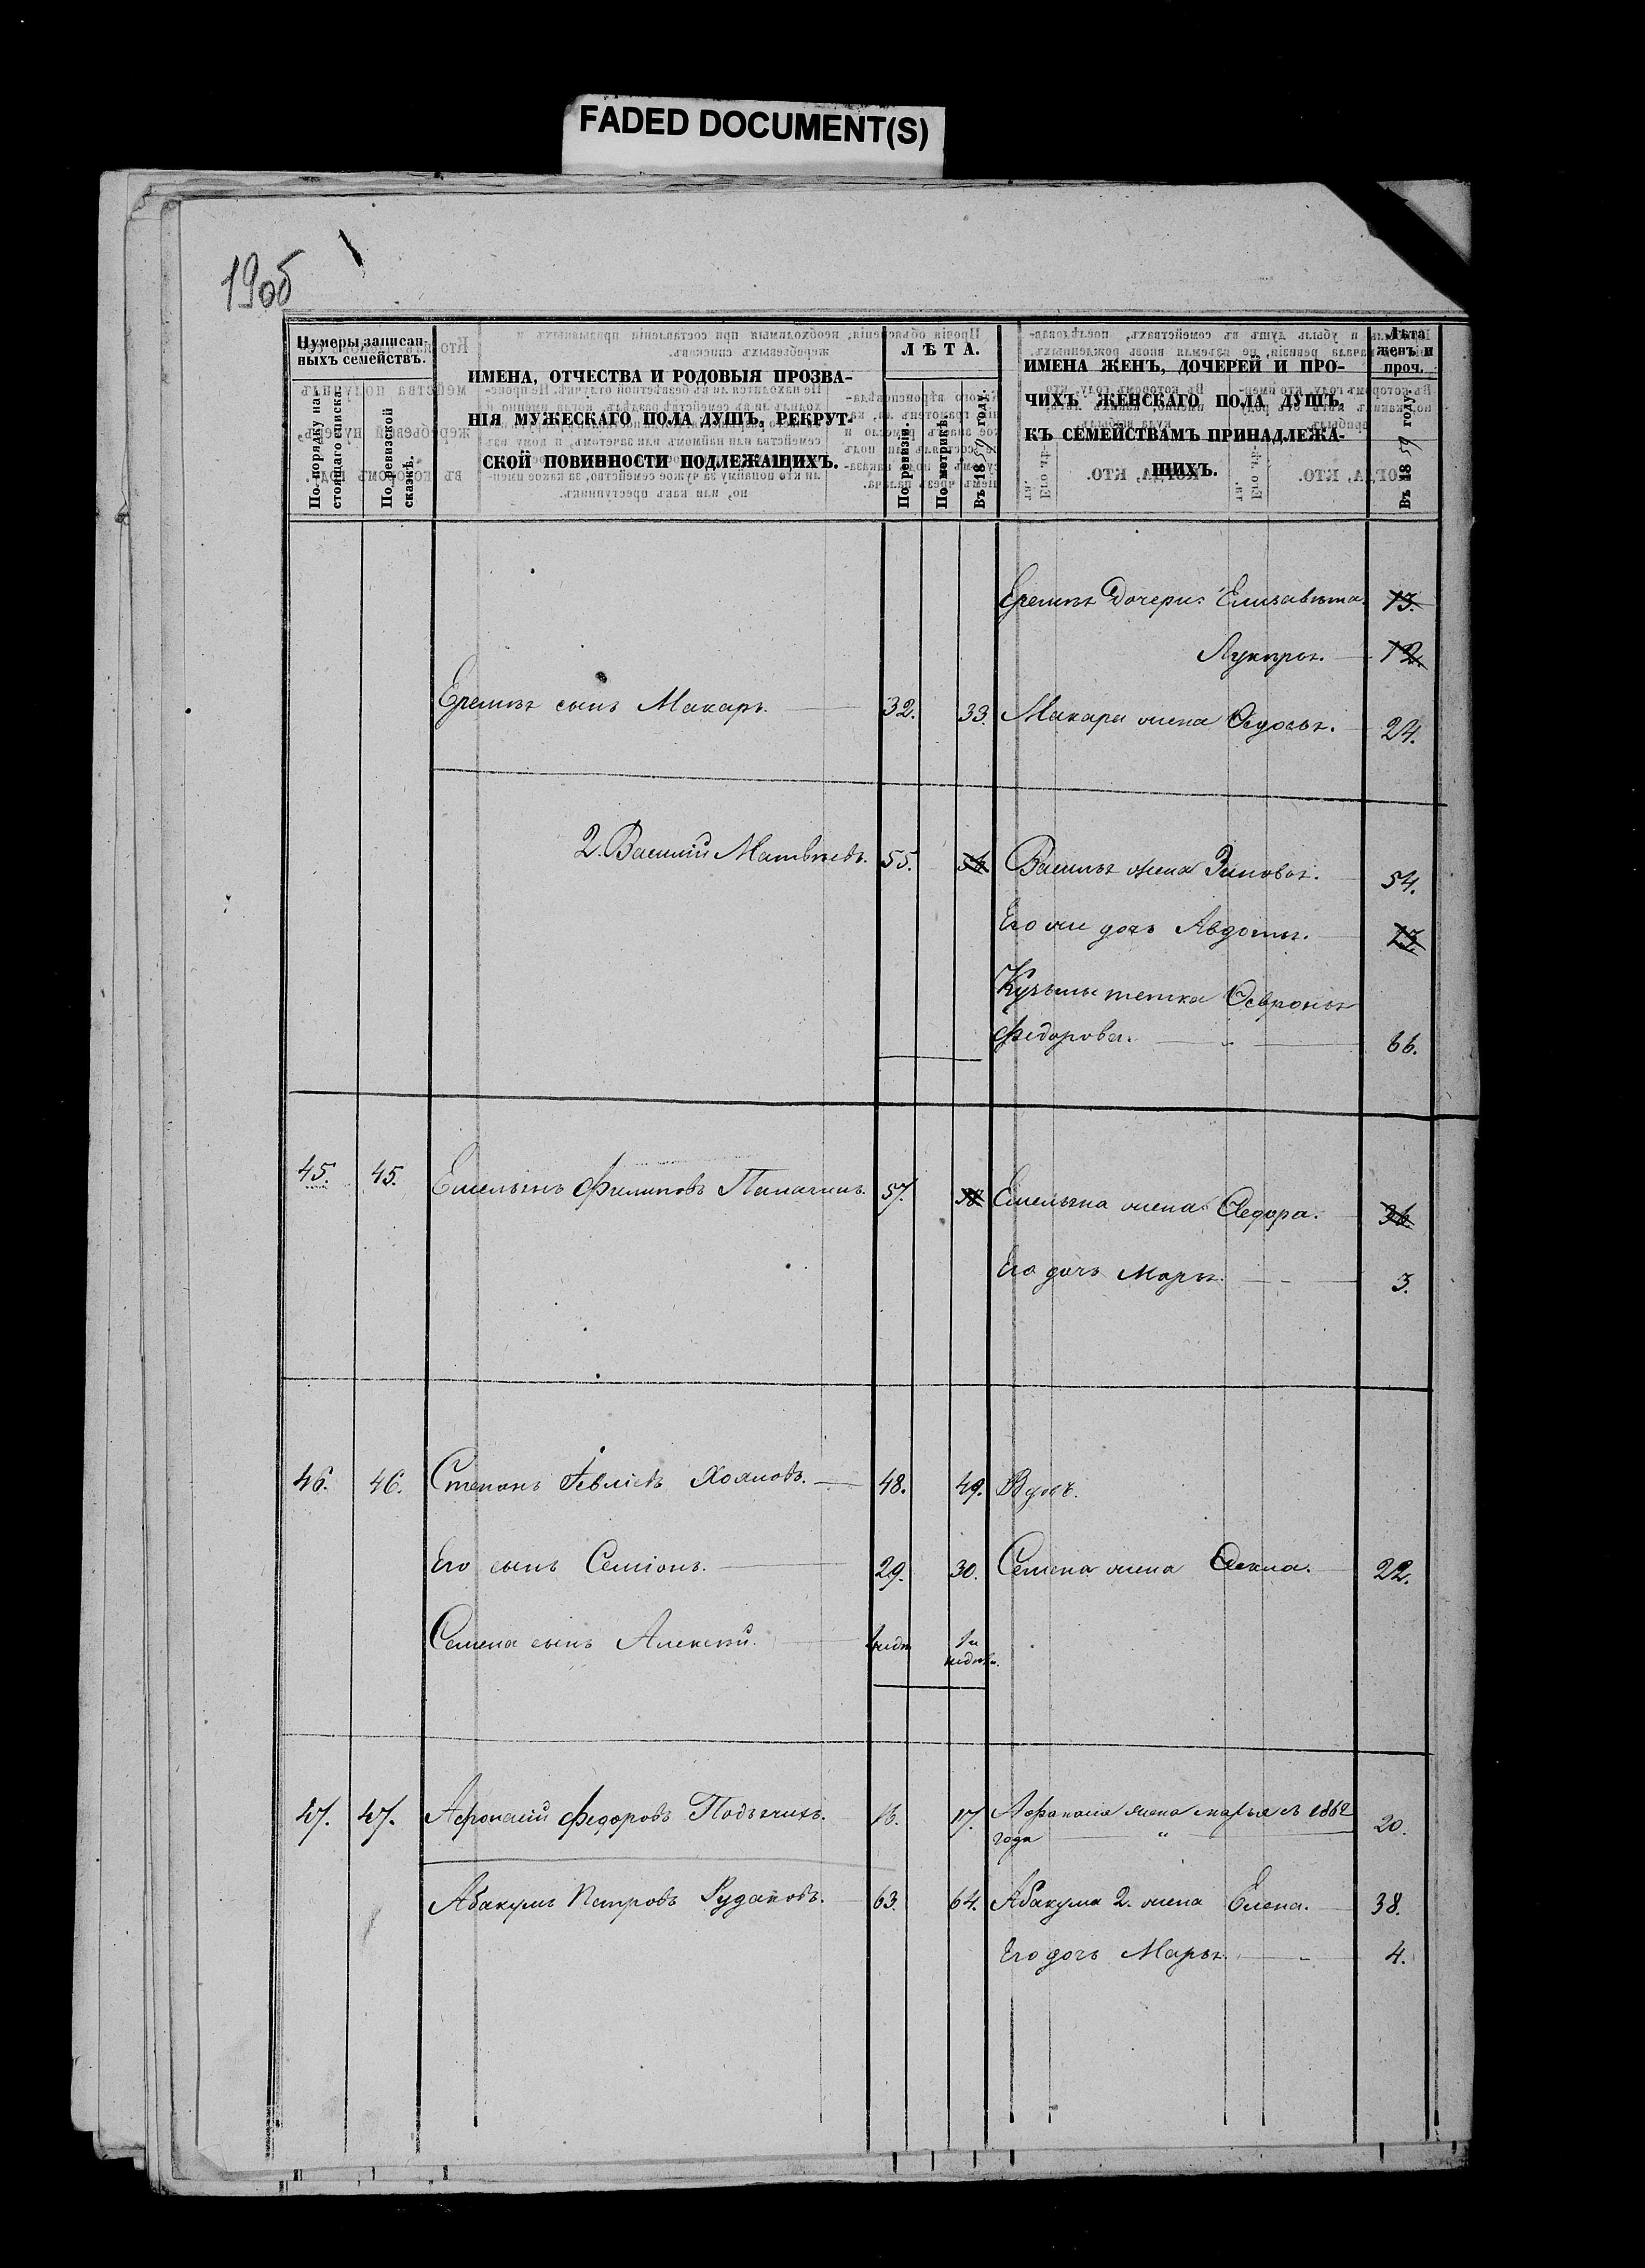 FADED DOCUMENT(S)
19об
Нумеры записан-
ныхъ семействъ.
По порядку на-
стоящаго списка.
По ревизской
сказкѣ.
ИМЕНА, ОТЧЕСТВА И РОДОВЫЯ ПРОЗВА-
НІЯ МУЖЕСКАГО ПОЛА ДУШЪ, РЕКРУТ-
СКОЙ ПОВИННОСТИ ПОДЛЕЖАЩИХЪ.
ЛѢТА.
По ревизіи.
По метрикѣ.
Въ 1859 году.
ИМЕНА ЖЕНЪ, ДОЧЕРЕЙ И ПРО-
ЧИХЪ ЖЕНСКАГО ПОЛА ДУШЪ,
КЪ СЕМЕЙСТВАМЪ ПРИНАДЛЕЖА-
ЩИХЪ.
Лѣта
женъ и
проч.
Въ 1859 году.
Еремѣя дочери: Елизавѣта. 13.
Лукерья. 12.
Еремѣя сынъ Макаръ. 32. 33. Макара жена Ѳедосья. 24.
2. Василій Матвѣевъ. 55. 56 Василья жена Зиновья. 54.
Его же дочь Авдотья. 15.
Кузьмы тетка Ѳевронья
Федорова. 66.
45. 45. Емельянъ Филиповъ 57. 58 Емельяна жена Ѳедора. 36
Его дочь Марья. 3.
46. 46. Степанъ 48. 49. Вдовъ.
Его сынъ Семіонъ. 29. 30. Семена жена Ѳекла. 22.
Семена сынъ Алексѣй.
47. 47. Афонасій Федоровъ 16. 17. Афанасія жена Марья съ 1862 20.
года "
Абакумъ Петровъ Рудаковъ. 63. 64. Абакума 2. жена Елена. 38.
Его дочь Марья. 4.